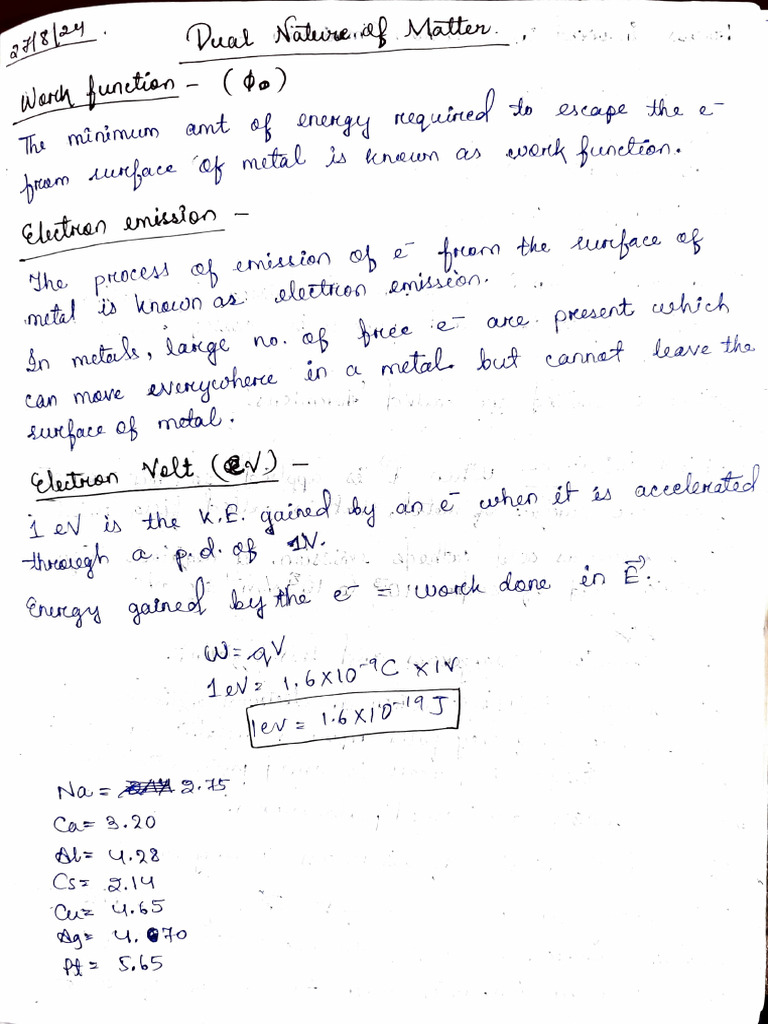 27/8/24.
Dual Nature of Matter.
Work function - (ϕ₀)
The minimum amt of energy required to escape the e⁻
from surface of metal is known as work function.
Electron emission -
The process of emission of e⁻ from the surface of
metal is known as electron emission.
In metals, large no. of free e⁻ are present which
can move everywhere in a metal but cannot leave the
surface of metal.
Electron Volt (eV.) -
1 eV is the K.E. gained by an e⁻ when it is accelerated
through a p.d. of 1V.
Energy gained by the e⁻ = work done in E⃗.
W = qV
1eV = 1.6×10⁻⁹C ×1V
1ev = 1.6×10⁻¹⁹J
Na = 2.75
Ca = 3.20
Al = 4.28
Cs = 2.14
Cu = 4.65
Ag = 4.70
Pt = 5.65